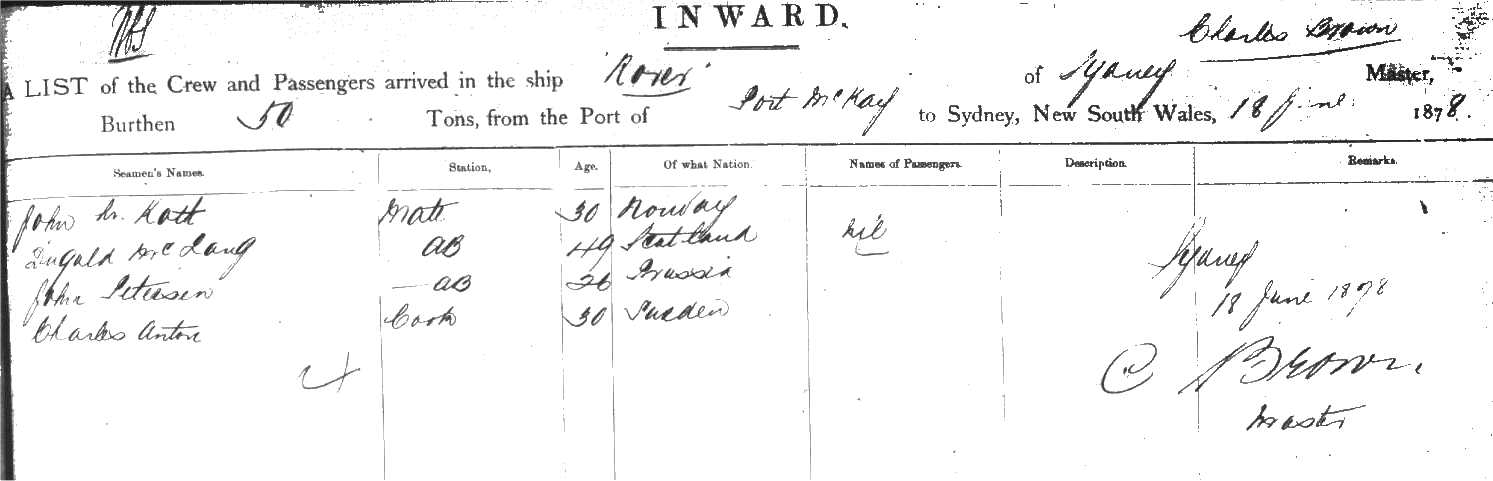 INWARD.
Charles Brown
A LIST of the Crew and Passengers arrived in the ship "Rover" of Sydney Master,
Burthen 50 Tons, from the Port of Port McKay to Sydney, New South Wales, 18 June 1878.
Seamen's Names. Station, Age. Of what Nation. Names of Passengers. Description. Remarks.
John Mate 30 Norway nil
Dugald AB 49 Scotland Sydney
John Petersen AB 26 Prussia 18 June 1878
Charles Anton Cook 30 Sweden
4 C Brown.
Master